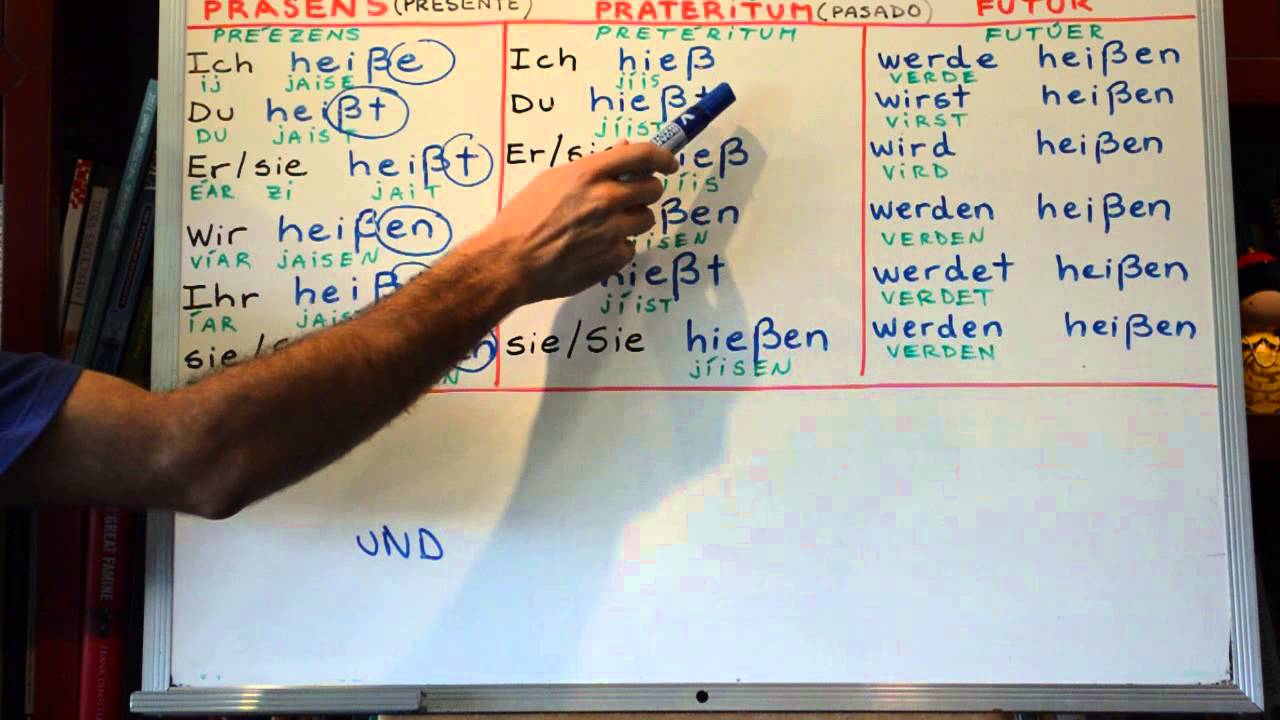 PRÄSENS (PRESENTE)
PREÉZENS
Ich heiße
ij JAiSE
Du heißt
DU JAiST
Er/sie heißt
ÉAR Zi JAiT
Wir heißen
VÍAR JAiSEN
Ihr heiß
ÍAR JAiS
sie/
PRÄTERiTUM (PASADO)
PRETERiTUM
Ich hieß
jíiS
Du hießt
jíiST
Er/sie hieß
jíiS
ßen
jíiSEN
hießt
jíiST
sie/Sie hießen
jíiSEN
FUTUR
FUTÚER
werde heißen
VERDE
wirst heißen
ViRST
wird heißen
ViRD
werden heißen
VERDEN
werdet heißen
VERDET
werden heißen
VERDEN
UND
GREAT FAMINE